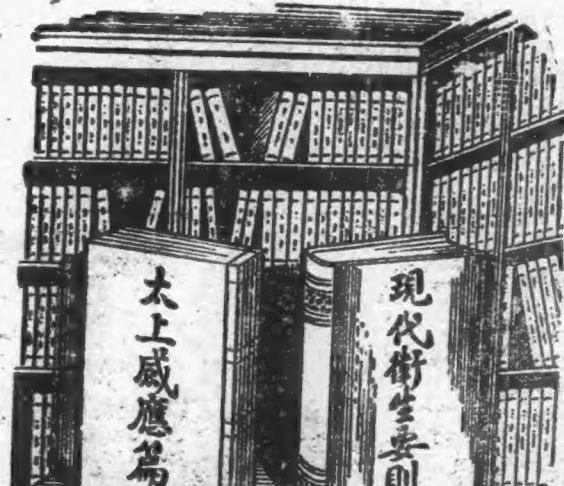 現代衛生要則
太上感應篇